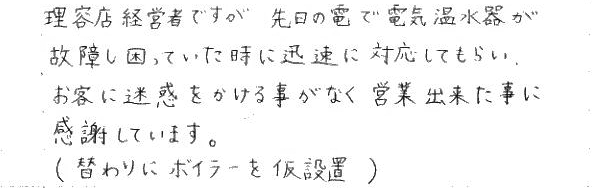 理容店経営者ですが 先日の雷で電気温水器が
故障し困っていた時に迅速に対応してもらい、
お客に迷惑をかける事がなく営業出来た事に
感謝しています。
(替わりにボイラーを仮設置)